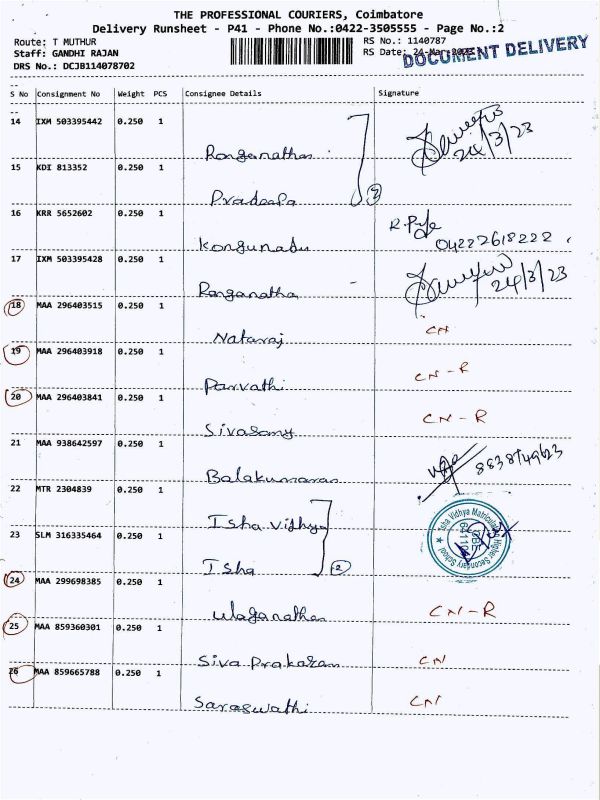 THE PROFESSIONAL COURIERS, Coimbatore
Delivery Runsheet - P41 - Phone No.:0422-3505555 - Page No.:2
Route: T MUTHUR
RS No.: 1140787
Staff: GANDHI RAJAN
RS Date: 24-Mar-2023
DOCUMENT DELIVERY
DRS No.: DCJB114078702
S No Consignment No Weight PCS Consignee Details Signature
14 IXM 503395442 0.250 1
Ranganathan
24/3/23
15 KDI 813352 0.250 1
Pradeepa
2
16 KRR 5652602 0.250 1
Kongunadu
04222618222
17 IXM 503395428 0.250 1
Ranganatha
24/3/23
18 MAA 296403515 0.250 1
Nataraj
CN
19 MAA 296403918 0.250 1
Parvathi
CN - R
20 MAA 296403841 0.250 1
Sivasamy
CN - R
21 MAA 938642597 0.250 1
Balakumaran
22 MTR 2304839 0.250 1
Isha Vidhya
Isha Vidhya Matriculation Higher Secondary School
23 SLM 316335464 0.250 1
Isha
2
24 MAA 299698385 0.250 1
Ulaganathan
CN-R
25 MAA 859360301 0.250 1
Siva Prakasam
CN
26 MAA 859665788 0.250 1
Saraswathi
CN